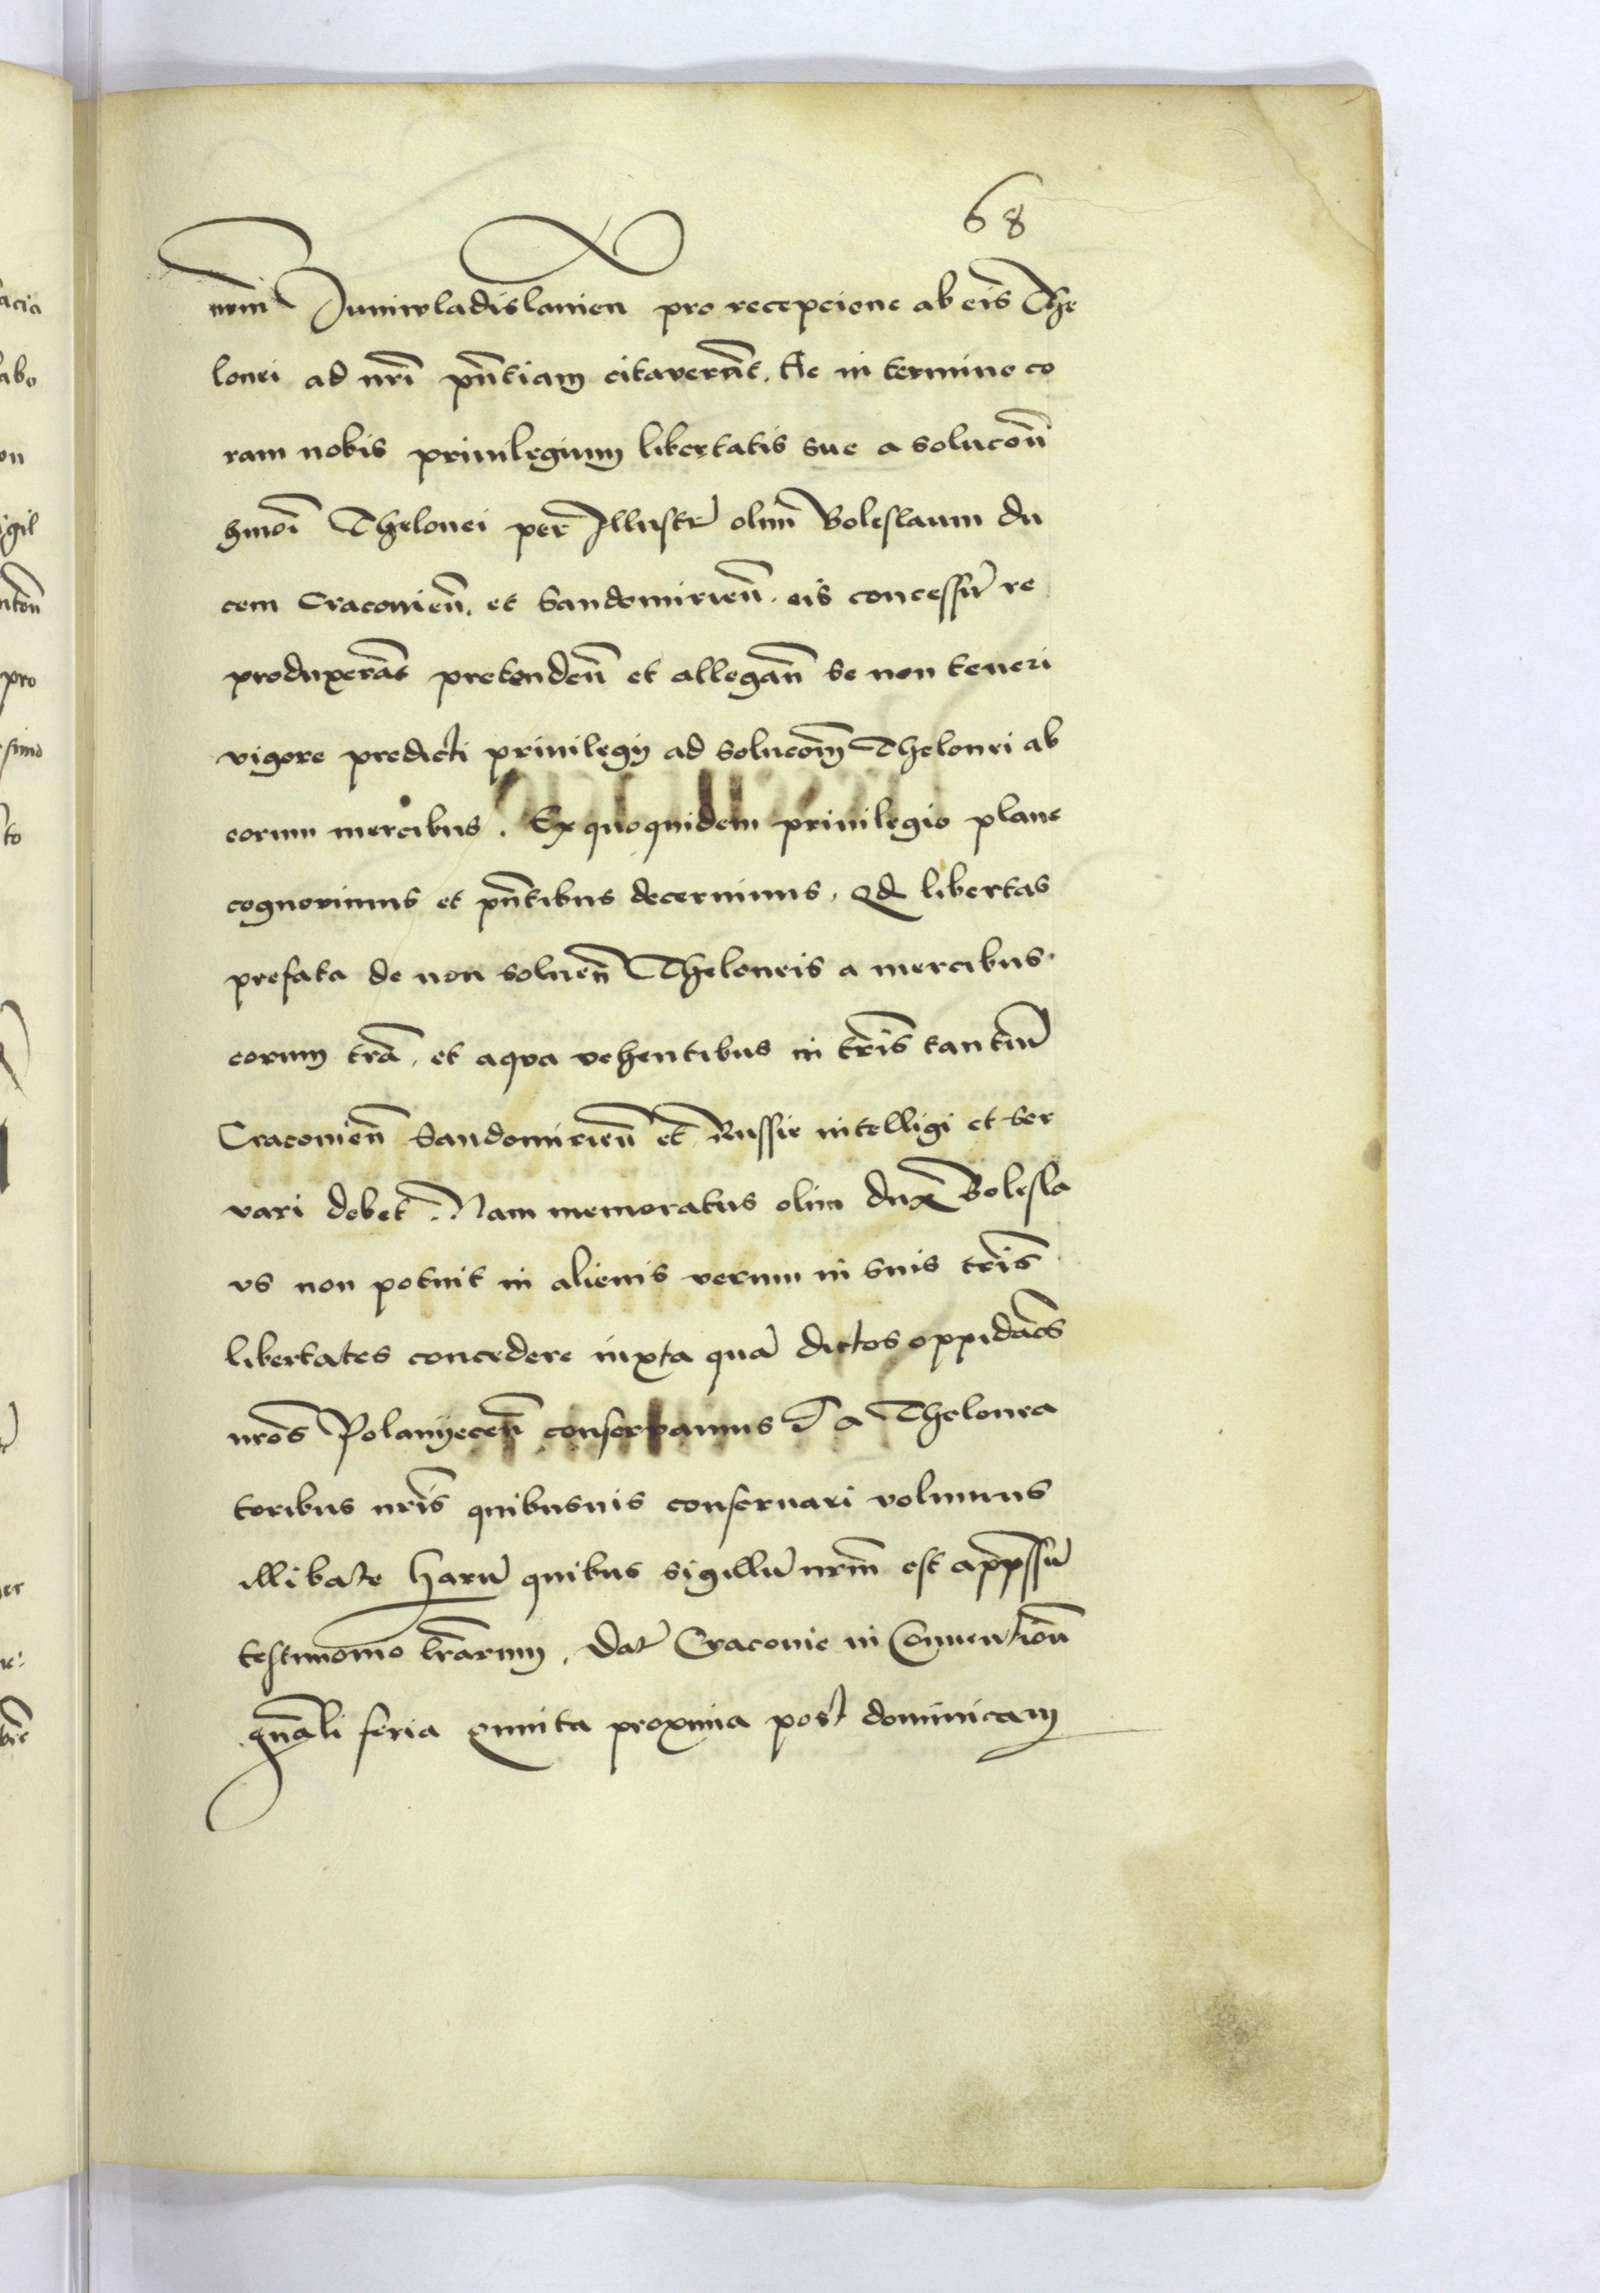 68
nrm Juniwladislauien pro recepcione ab eis The
lonei ad nri pntiam citaverant. Ac in termino co
ram nobis priuilegium libertatis sue a solucon
hmoi Thelonei per Illustr olim Boleslaum du
cem Cracouien. et Sandomirien. eis concessu re
produxerat pretenden et allegan se non teneri
vigore predicti priuilegij ad solucom Thelonei ab
eorum mercibus. Ex quoquidem priuilegio plane
cognovimus et pntibus decernimus. qd libertas
prefata de non soluen Theloneis a mercibus
eorum tra. et aqva vehentibus in tris tantum
Cracouien Sandomirien et Russie intelligi et ser
vari debet. Nam memoratus olim dux Bolesla
vs non potuit in alienis verum in suis tris
libertates concedere iuxta qua dictos oppidaos
nros Polanyecen conservamus et a Thelonea
toribus nris quibusuis conseruari volumus
illibate Haru quibus sigillu nrm est appssu
testimonio lrarum. Dat Cracouie in Conuention
gnali feria quinta proxima post dominicam